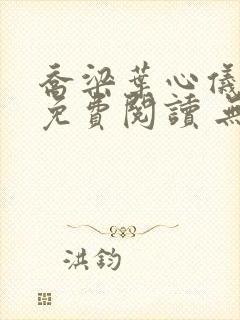 喬梁葉心儀
免費閱讀 無
洪鈞